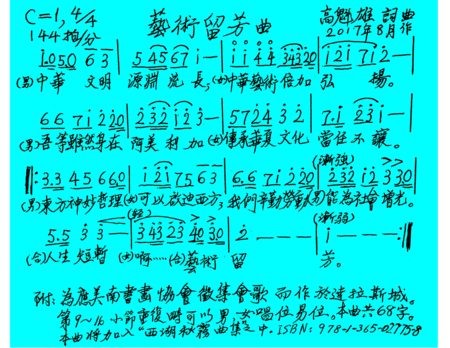 C=1, 4/4 藝術留芳曲 高魁雄 詞曲
144拍/分 2017年8月作
1.05.0 6 3 | 5 45 67 i — | i i 4 4 34320 | i 2 i 7 i 2 — |
(男)中華 文明 源淵 流 長,(女)中華藝術倍加 弘 揚。
6 6 7 i 2 20 | 2 3 2 i 2 3 — | 5 7 2 4 3 2 | 7. i 2 3 i — |
(男)吾等雖然身在 阿美利加(女)傳承華夏文化 當仁不讓。
(漸強)
‖: 3.3 4 5 6 60 | i 2 i 7 5 6 3 | 6.6 7 i 2 20 | 2 3 2 i 2 3 30 |
(男)東方神妙哲理(女)可以啟迪西方,我們辛勤勞動(男)能為社會增光。
(輕) (漸弱)
5.5 3 3 — | 3 4 3 2 3 40 30 | 2 — — — | i — — — :‖
(合)人生 短暫 (女)啊……(合)藝術 留 芳。
附: 為應美南書畫協會徵集會歌 而作於達拉斯城。
第9~16小節重複時可以男,女唱位易位。本曲共68字。
本曲將加入"西湖秘露曲集"之中. ISBN: 978-1-365-02775-8